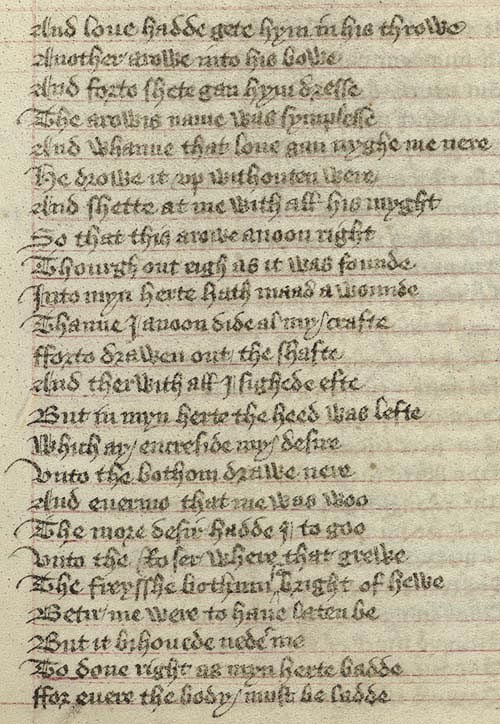 And loue hadde gete hym in his throwe
Another arowe into his bowe
And forto shete gan hym dresse
The arowis name was symplesse
And whanne that loue gan nyghe me nere
He drowe it vp withouten were
And shette at me with all his myght
So that this arowe anoon right
Thourgh out eigh as it was founde
Into myn herte hath maad a wounde
Thanne I anoon dide al my crafte
fforto drawen out the shafte
And therwith all I sighede efte
But in myn herte the heed was lefte
Which ay encreside my desire
Vnto the bothom drawe nere
And euermo that me was woo
The more desir hadde I to goo
Vnto the Roser where that grewe
The freysshe bothum bright of hewe
Betir me were to haue laten be
But it bihouede nede me
To done right as myn herte badde
ffor euere the body must be ladde